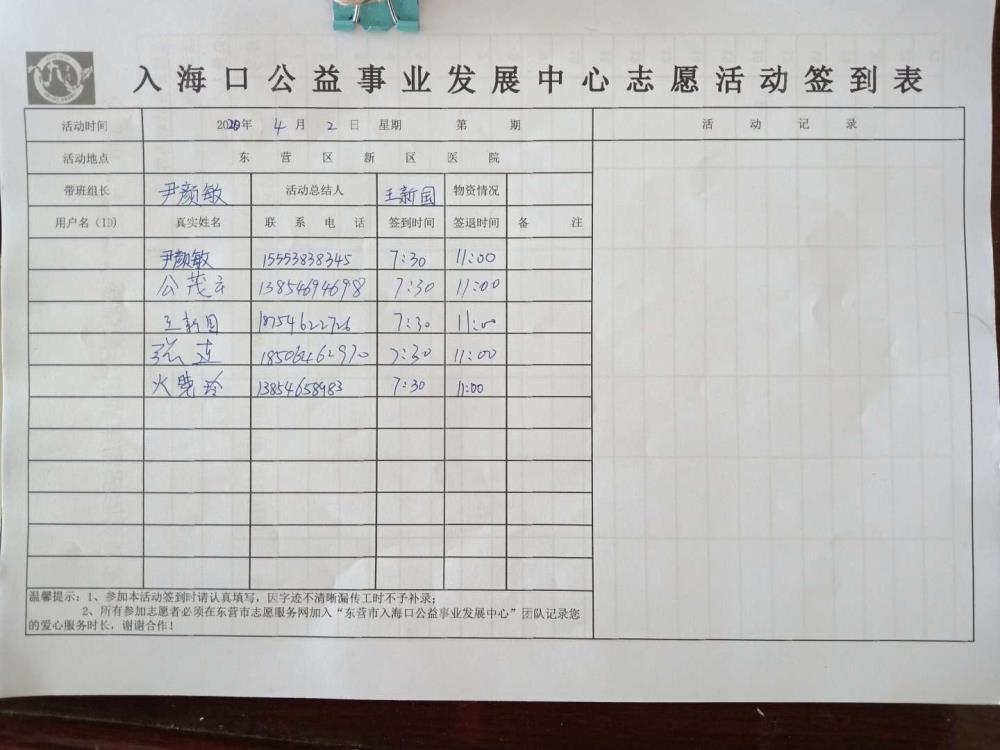 入海口公益事业发展中心志愿活动签到表
活动时间 2020年 4月 2日 星期 第 期 活动记录
活动地点 东营区新区医院
带班组长 尹颜敏 活动总结人 王新国 物资情况
用户名（ID） 真实姓名 联系电话 签到时间 签退时间 备注
尹颜敏 15553838345 7:30 11:00
公茂云 13854694698 7:30 11:00
王新国 18754622726 7:30 11:00
张莲 18506462970 7:30 11:00
火晓玲 13854658983 7:30 11:00
温馨提示：1、参加本活动签到时请认真填写，因字迹不清晰漏传工时不予补录；
2、所有参加志愿者必须在东营市志愿服务网加入“东营市入海口公益事业发展中心”团队记录您
的爱心服务时长，谢谢合作！